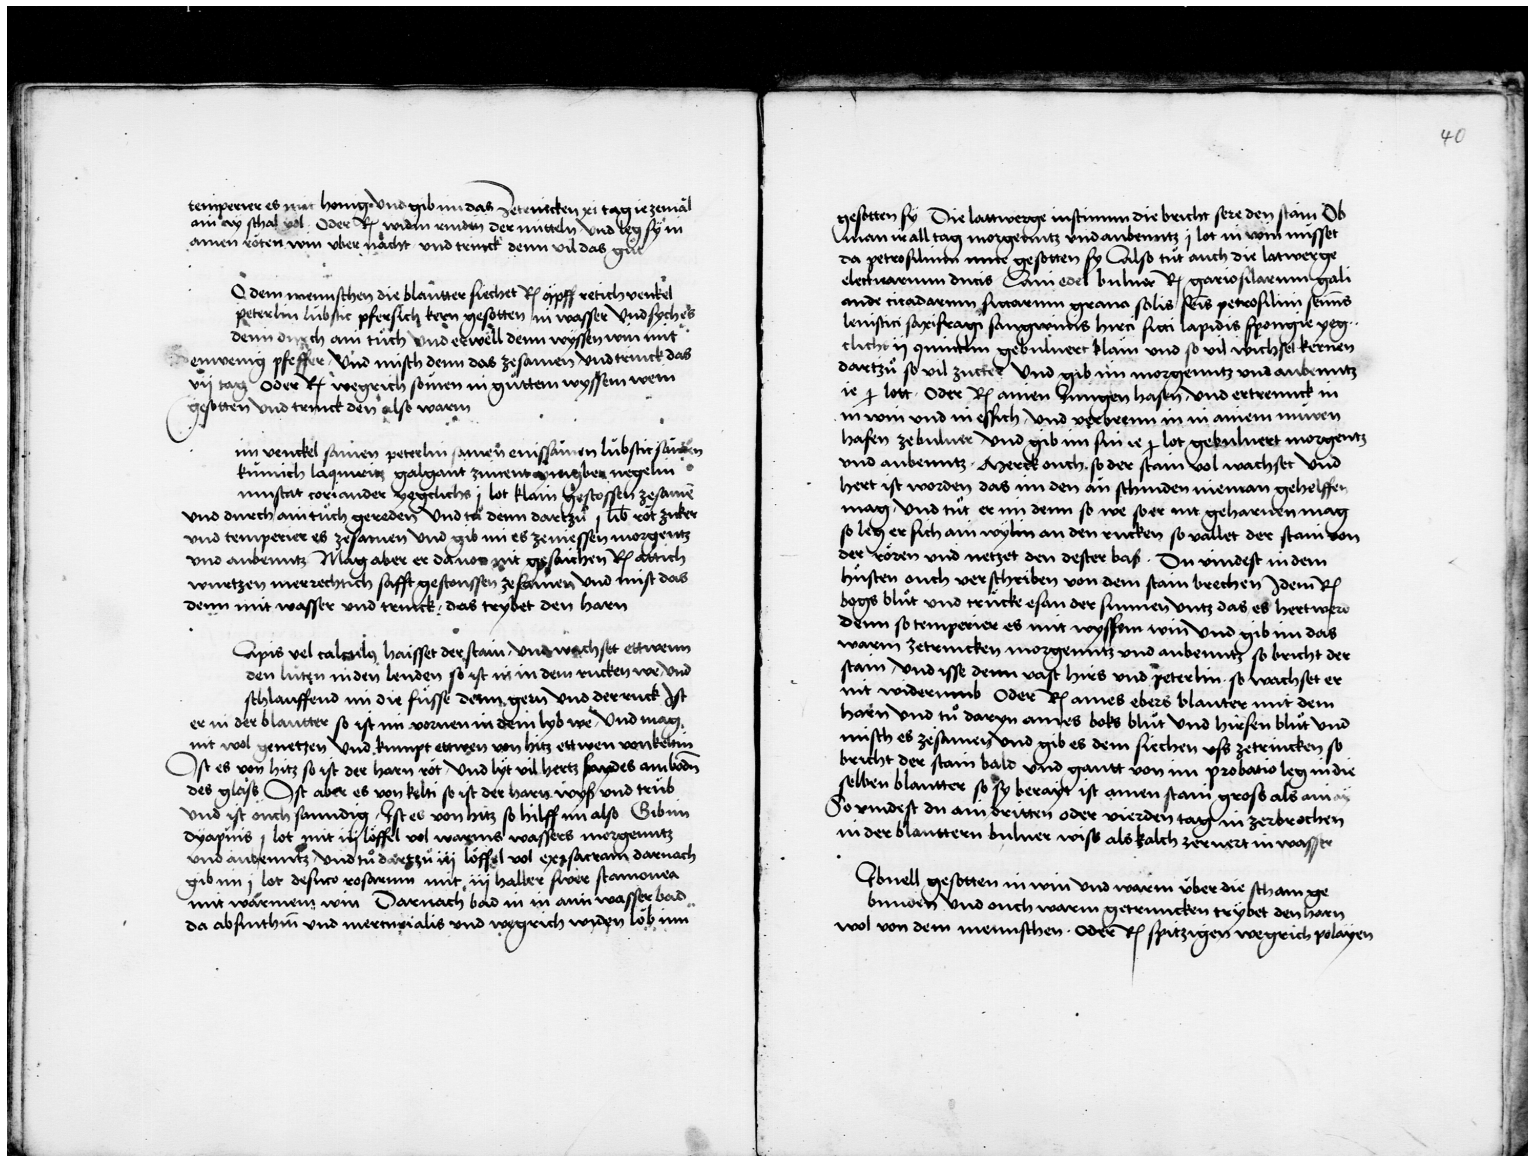 temperier es mit honig Vnd gib im das Zetrincken xi tag ie zemal
ain ay schal vol. Oder R widin rinden der mitteln Vnd leg sy in
ainen roten win vber nacht vnd trinck denn vil das gůt
O dem menschen die blautter siechet R öpff retich venkel
peterlin lübstic pfersich kern gesotten in wasser Vnd sych es
denn durch ain tůch Vnd erwell denn wyssen win mit
ein wenig pfeffer Vnd misch denn das zesamen Vnd trinck das
vij tag Oder R wegrich somen in gůttem wyssem wein
gesotten Vnd trinck den also warm
im venckel samen peterlin samen enissamen lübstic samen
kümich laquiritz galgant zinent ymber negelin
muscat coriander yegclichs j lot klain gestossen zesamē
vnd durch ain tůch gereden Vnd tů denn dartzů j lib rot zuker
vnd temperier es zesamen Vnd gib im es zeniessen morgentz
vnd aubentz Mag aber er da nit gesaichen R attich
wurtzen merrechtich safft gestoussen zesamen Vnd mist das
denn mit wasser vnd trinck, das trybet den harn
Apis vel calculꝯ haisset der stain, Vnd wachset ettwenn
den lüten in den lenden so ist in in dem rucken we, Vnd
schlauffend im die füsse denn gern Vnd der ruck Ist
er in der blautter so ist im vornen in dem lyb we, Vnd mag
nit wol genetzen Vnd kumpt ettwen von hitz ettwen von keltin
Ist es von hitz so ist der harn rot Vnd lyt vil hertz sandes am bodn
des glaß Ist aber es von kelti so ist der harn wyß vnd trüb
Vnd ist ouch sanndig. Ist es von hitz so hilff im also Gib im
dyapinis j lot mit iij löffel vol warms wassers morgentz
vnd aubentz, Vnd tů dartzů iij löffel vol darnach
gib im j lot desuco rosarum mit iij haller swer scamonea
mit warmem win Darnach bad in in ain wasser bad
da absinthiū vnd mercurialis vnd wegrich wyden lob inn
40
gesotten sy Die lattwerge iustinum die bricht sere den stain Ob
man ir all tag morgentz vnd aubentz j lot in win nüsset
da petrosilium inne gesotten sy Also tůt auch die latwerge
electuarium ducis Ain edel buluer R gariofilarum gali
ande cicadarum sicarum grana solis petrosilini
leuistici saxifragi sangwinis hirci sicci lapidis spongie yeg
clichs ij quintlin gebuluert klain vnd so vil wichsel kernen
dartzů so vil zucker Vnd gib im morgentz vnd aubentz
ie lott. Oder R ainen Jungen hasen, vnd ertrenck in
in win vnd in essich, Vnd verbrenn in in ainem nüwen
hafen zebuluer Vnd gib im sin ie lot gebuluert morgentz
vnd aubentz. Merck ouch so der stain vol wachset Vnd
hert ist worden das im den an schniden nieman gehelffen
mag, Vnd tůt er im denn so we so er nit geharnen mag
so leg er sich ain wylin an den rucken so vallet der stain von
der röden vnd netzet den dester baß. Du vindest in dem
hůsten ouch verschriben von dem stain brechen Jdem R
bogs blůt vnd trücke es an der sunnen vntz das es hert werd
denn so temperier es mit wyssem win Vnd gib im das
warm zetrincken morgentz vnd aubentz so bricht der
stain, Vnd isse denn vast hirs vnd peterlin so wachset er
nit widerumb Oder R aines ebers blauter mit dem
harn Vnd tů daryn aines boks blůt Vnd hirsen blůt Vnd
misch es zesamen Vnd gib es dem siechen vss zetrincken so
bricht der stain bald Vnd gautt von im probatio leg in die
selben blautter so sy berayt ist ainen stain gross als ain ay
So vindest du ain dritten oder vierden tag in zerbrochen
in der blauttern buluer wiss als kalch zeruert in wasser
Ibuell gesotten in win Vnd warm über die scham ge
bunden Vnd ouch warm getruncken trybet den harn
wol von dem menschen. Oder R spitzigen wegrich polayen